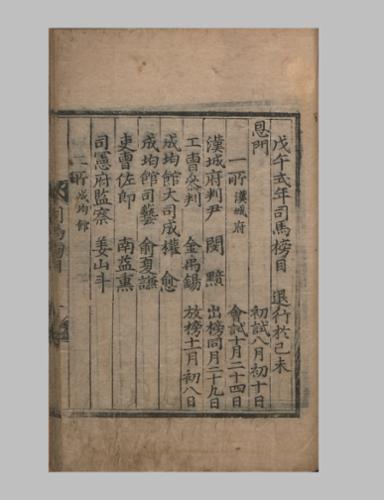 戊午式年司馬榜目 退行於己未
恩門 初試八月初十日
一所漢城府 會試十月二十四日
漢城府判尹 閔黯 出榜同月二十九日
工曹參判 金禹錫 放榜十一月初八日
成均館大司成權愈
成均館司藝 俞夏謙
吏曹佐郎 南益熏
司憲府監察 姜山斗
二所成均館